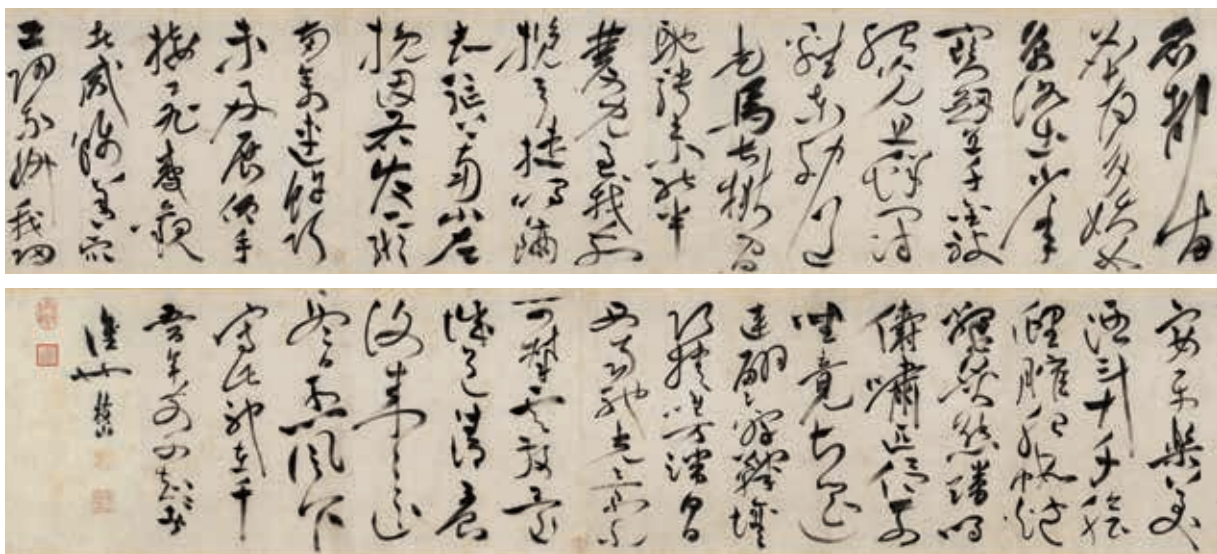 名都
名都多妖女
京洛出少年
寶劍直千金被
服光且鮮鬥
雞東郊道
走馬長楸間
馳騁未能半
雙兔過我前
攬弓捷鳴鏑
長驅上南山左
挽因右發一縱
兩禽連餘巧
未及展仰手
接飛鳶觀
者咸稱善眾
工歸我妍歸
宴平樂美
酒斗十千膾
鯉臇胎鰕炮鱉
炙熊蹯鳴
儔嘯匹侶列
坐竟長筵
連翩擊鞠壤
巧捷惟萬端白日
西南馳光景不
可攀雲散還
城邑清晨
復來還
冬日烈風下
寫此神在千
枝山